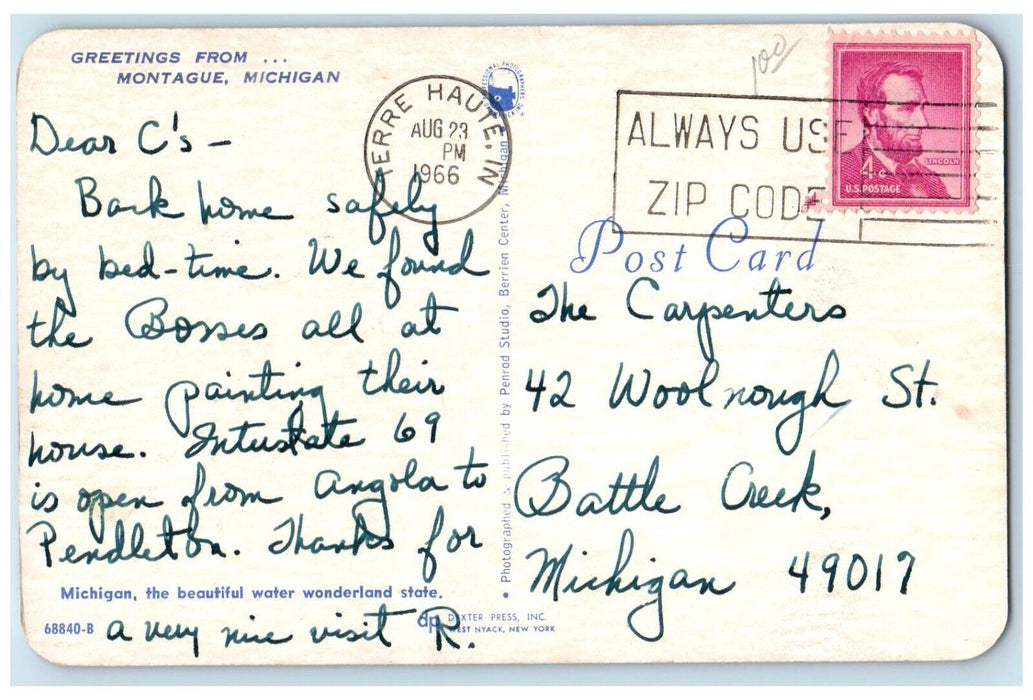 GREETINGS FROM ...
MONTAGUE, MICHIGAN
Dear C's -
Back home safely
by bed-time. We found
the Bosses all at
home painting their
house. Interstate 69
is open from Angola to
Pendleton. Thanks for
Michigan, the beautiful water wonderland state.
68840-B
a very nice visit R.
dp DEXTER PRESS, INC.
WEST NYACK, NEW YORK
• Photographed & published by Penrod Studio, Berrien Center, Michigan •
TERRE HAUTE, IN
AUG 23
PM
1966
100
ALWAYS USE
ZIP CODE
LINCOLN
4¢
U.S. POSTAGE
Post Card
The Carpenters
42 Woolnough St.
Battle Creek,
Michigan 49017